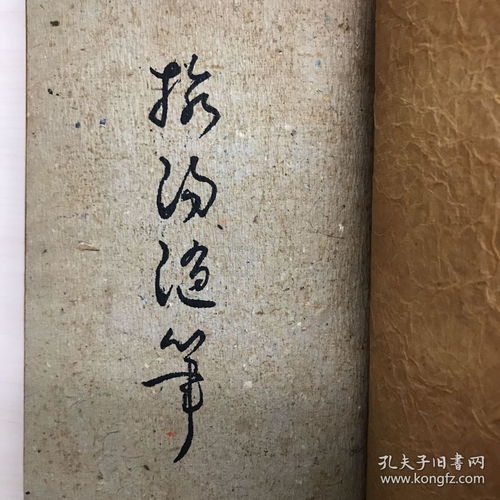 随筆
孔夫子旧书网
www.kongfz.com